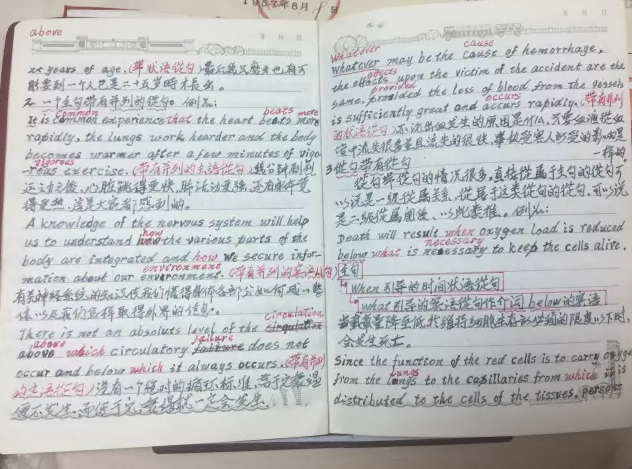 1987年8月
above
年 月 日
25 years of age. (带状语从句)
2. 一个主句带有并列的从句。例如:
Common beats more
It is common experience that the heart beats more
rapidly, the lungs work hearder and the body
becomes warmer after a few minutes of vigo-
vigorous
rous exercise. (带有并列的主语从句)
运动之后,心脏跳得更快,肺活动更强,还有身体觉
得更热,这是大家都感到的。
A knowledge of the nervous system will help
how
us to understand how the various parts of the
body are integrated and how we secure infor-
environment
mation about our environment. (带有并列的宾语从句)
有关神经系统的知识使我们懂得身体各部分如何成一整
体以及我们怎样取得外界的信息。
circulation
There is not an absolute level of the circulation
above failure
above which circulatory failure does not
occur and below which it always occurs. (带有并列
的定语从句) 没有一个绝对的循环标准,
年 月 日
Whatever cause
whatever may be the cause of hemorrhage,
effects
the effects upon the victim of the accident are the
provided
same, provided the loss of blood from the vessels
occurs
is sufficiently great and occurs rapidly. (带有并列
的状语从句) 不论出血发生的原因是什么,只要血液从
一样的
3 从句带有从句
从句带从句的情况很多,直接从属于主句的从句可
以说是一级从属关系,从属于这类从句的从句,可以说
是二级从属关系,以此类推。例如:
Death will result when oxygen load is reduced
necessary
below what is necessary to keep the cells alive.
主句
when 引导的时间状语从句
what 引导的宾语从句作介词 below 的宾语
当氧含量降至低于维持细胞生存所必需的限度以下时,
会发生死亡。
Since the function of the red cells is to carry oxygen
lungs
from the lungs to the capillaries from which it is
distributed to the cells of the tissues, persons